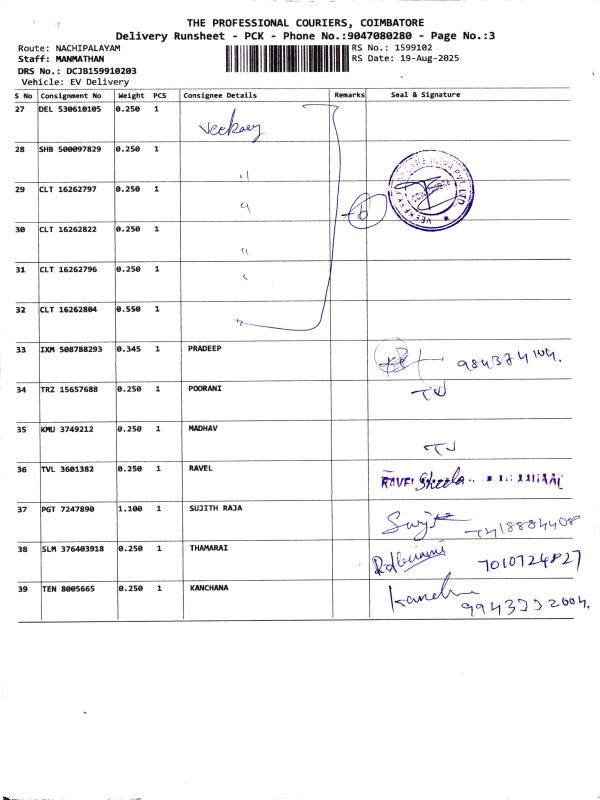 THE PROFESSIONAL COURIERS, COIMBATORE
Delivery Runsheet - PCK - Phone No.:9047080280 - Page No.:3
Route: NACHIPALAYAM RS No.: 1599102
Staff: MANMATHAN RS Date: 19-Aug-2025
DRS No.: DCJB159910203
Vehicle: EV Delivery
S No Consignment No Weight PCS Consignee Details Remarks Seal & Signature
27 DEL 530610105 0.250 1 Veekesy
28 SHB 500097829 0.250 1 "
29 CLT 16262797 0.250 1 "
30 CLT 16262822 0.250 1 "
31 CLT 16262796 0.250 1 "
32 CLT 16262804 0.550 1 "
33 IXM 508788293 0.345 1 PRADEEP
34 TRZ 15657688 0.250 1 POORANI
35 KMU 3749212 0.250 1 MADHAV
36 TVL 3601382 0.250 1 RAVEL RAVEL Sheela
37 PGT 7247890 1.100 1 SUJITH RAJA 7418884408
38 SLM 376403918 0.250 1 THAMARAI 7010724827
39 TEN 8005665 0.250 1 KANCHANA